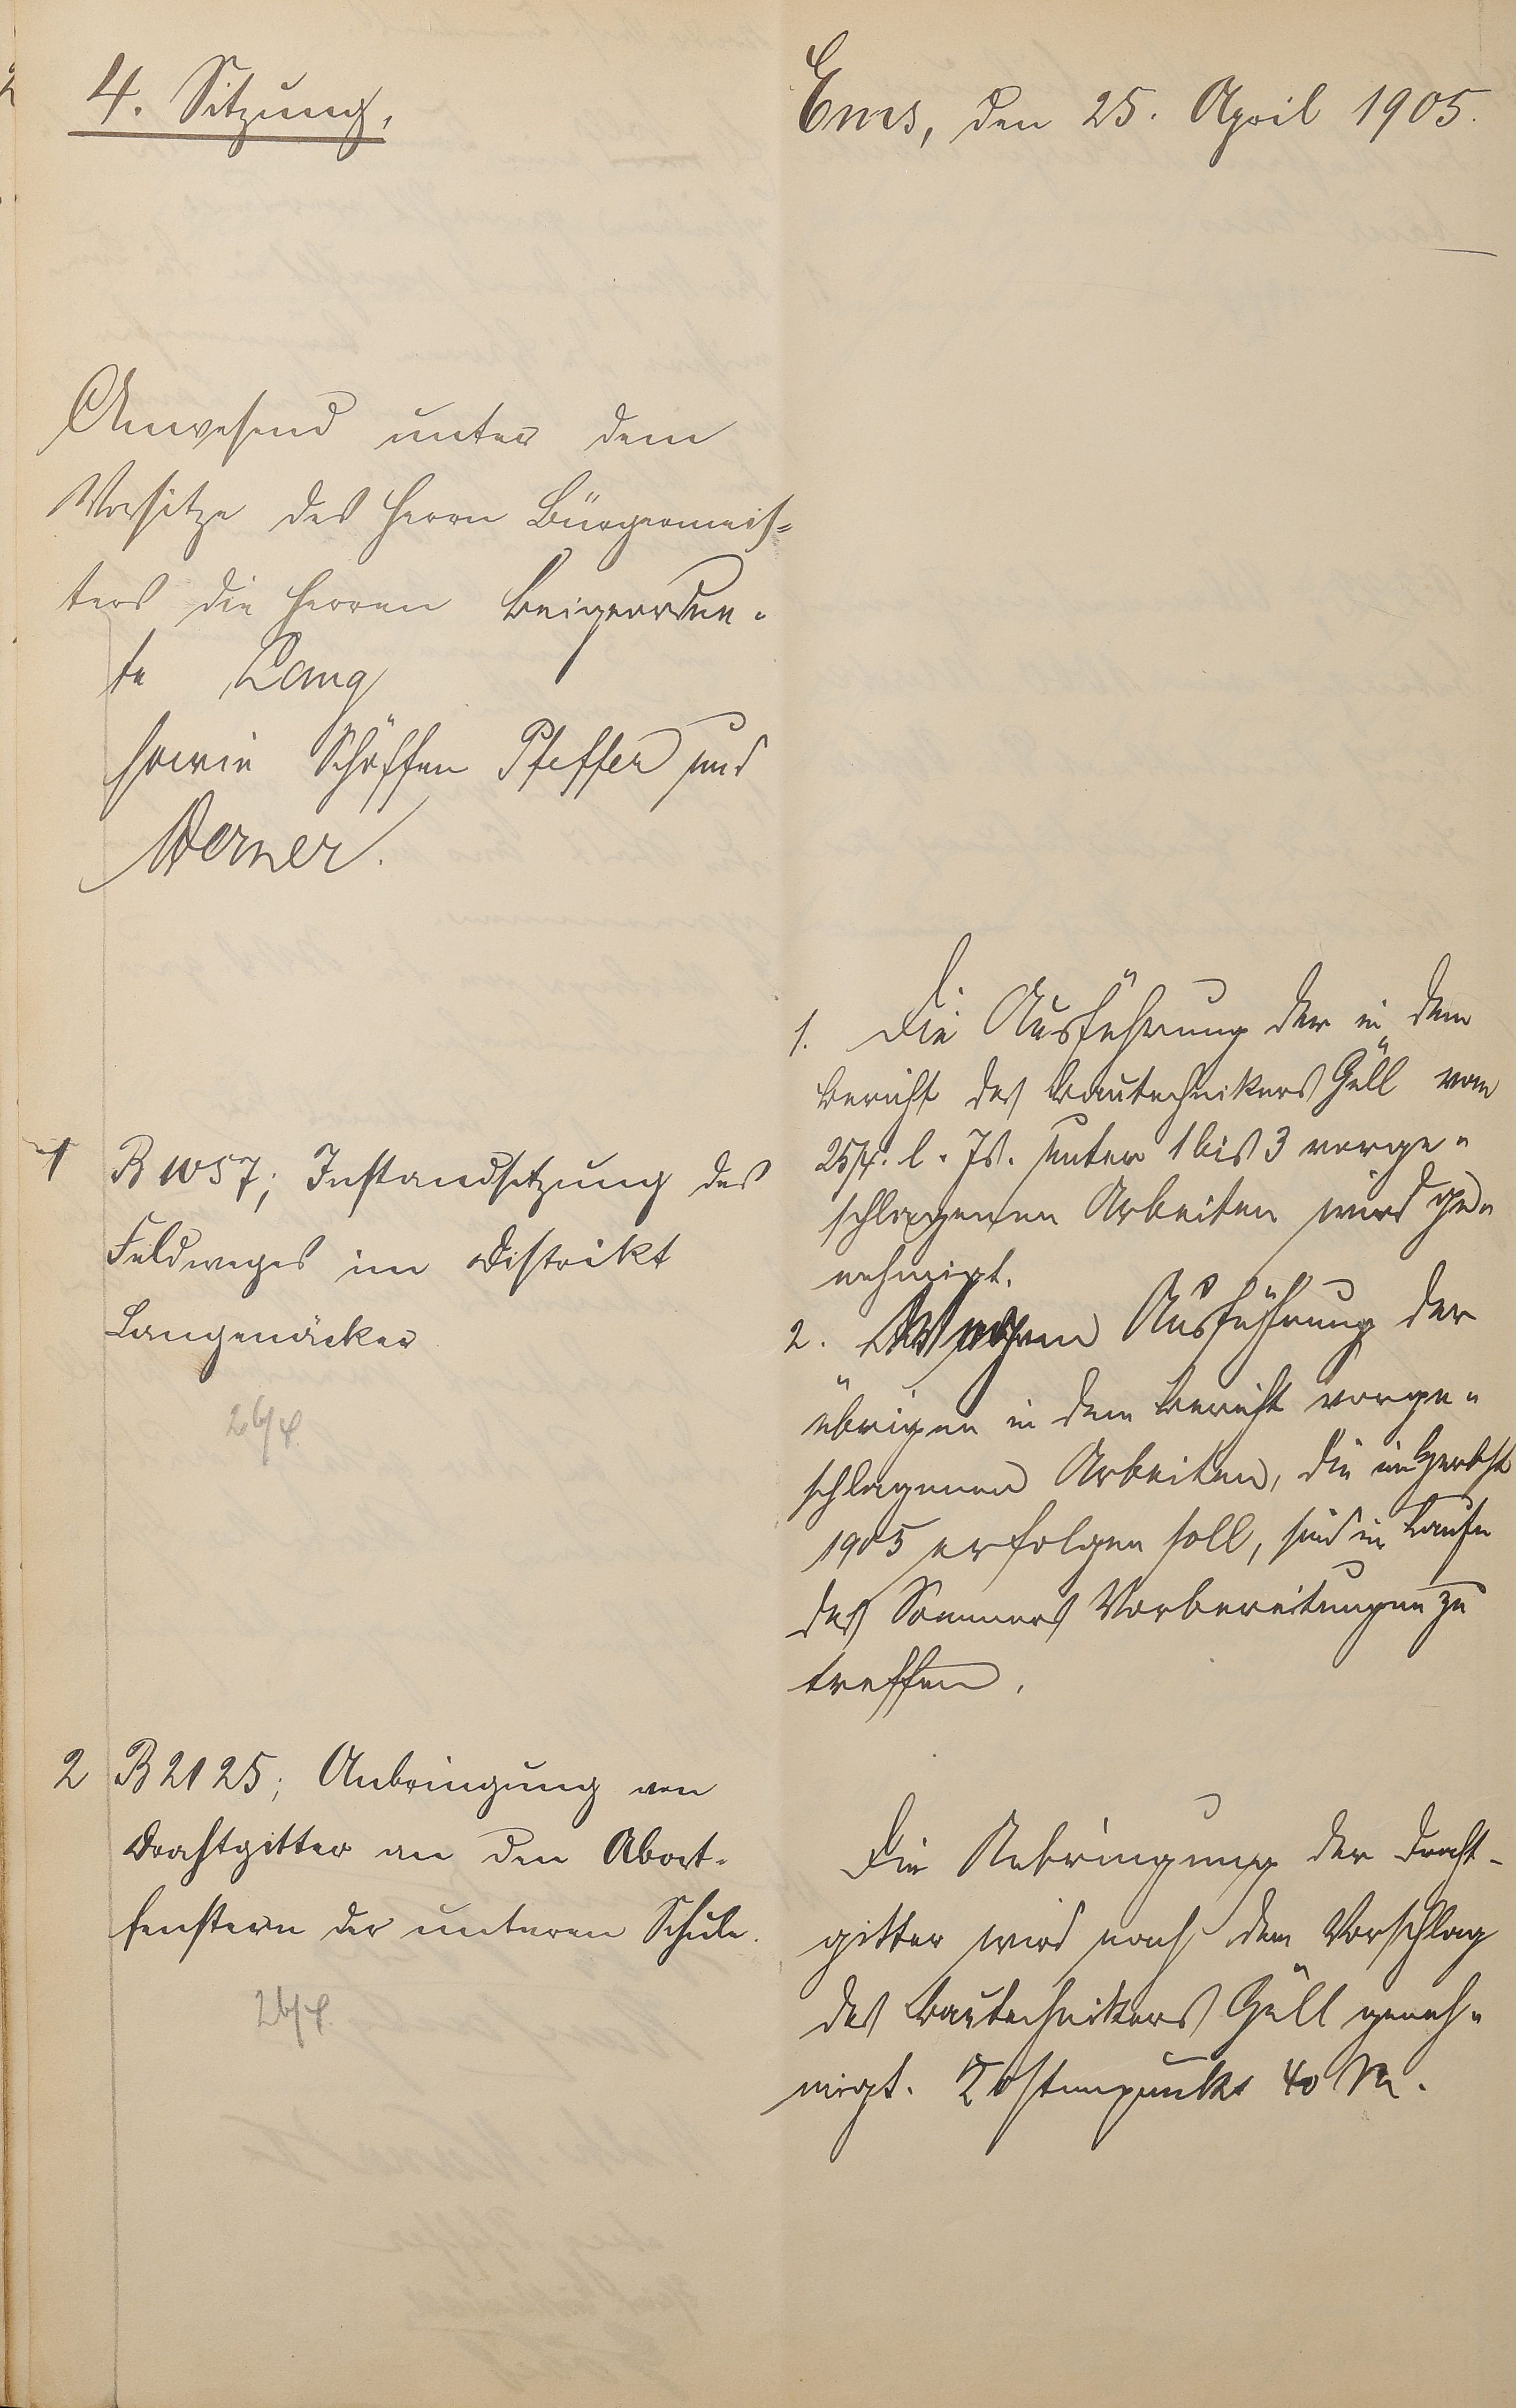 4. Sitzung.
Ems, den 25. April 1905.
Anwesend unter dem
Vorsitze des Herrn Bürgermeis-
ters die Herren Beigeordne-
te Lang
sowie Schöffen Pfeffer und
Werner.
1 B 1057; Instandsetzung des
Feldweges im Distrikt
Langenäcker
26/4.
1. Die Ausführung der in dem
Bericht des Bautechnikers Güll vom
25/4. l. Js. unter 1 bis 3 vorge-
schlagenen Arbeiten wird ge-
nehmigt.
2. Wegen Ausführung der
übrigen in dem Bericht vorge-
schlagenen Arbeiten, die im Herbst
1905 erfolgen soll, sind im Laufe
des Sommers Vorbereitungen zu
treffen.
2 B 2125; Anbringung von
Drahtgitter an den Abort-
fenstern der unteren Schule.
26/4.
Die Anbringung der Draht-
gitter wird nach dem Vorschlag
des Bautechnikers Güll geneh-
migt. Kostenpunkt 40 M.